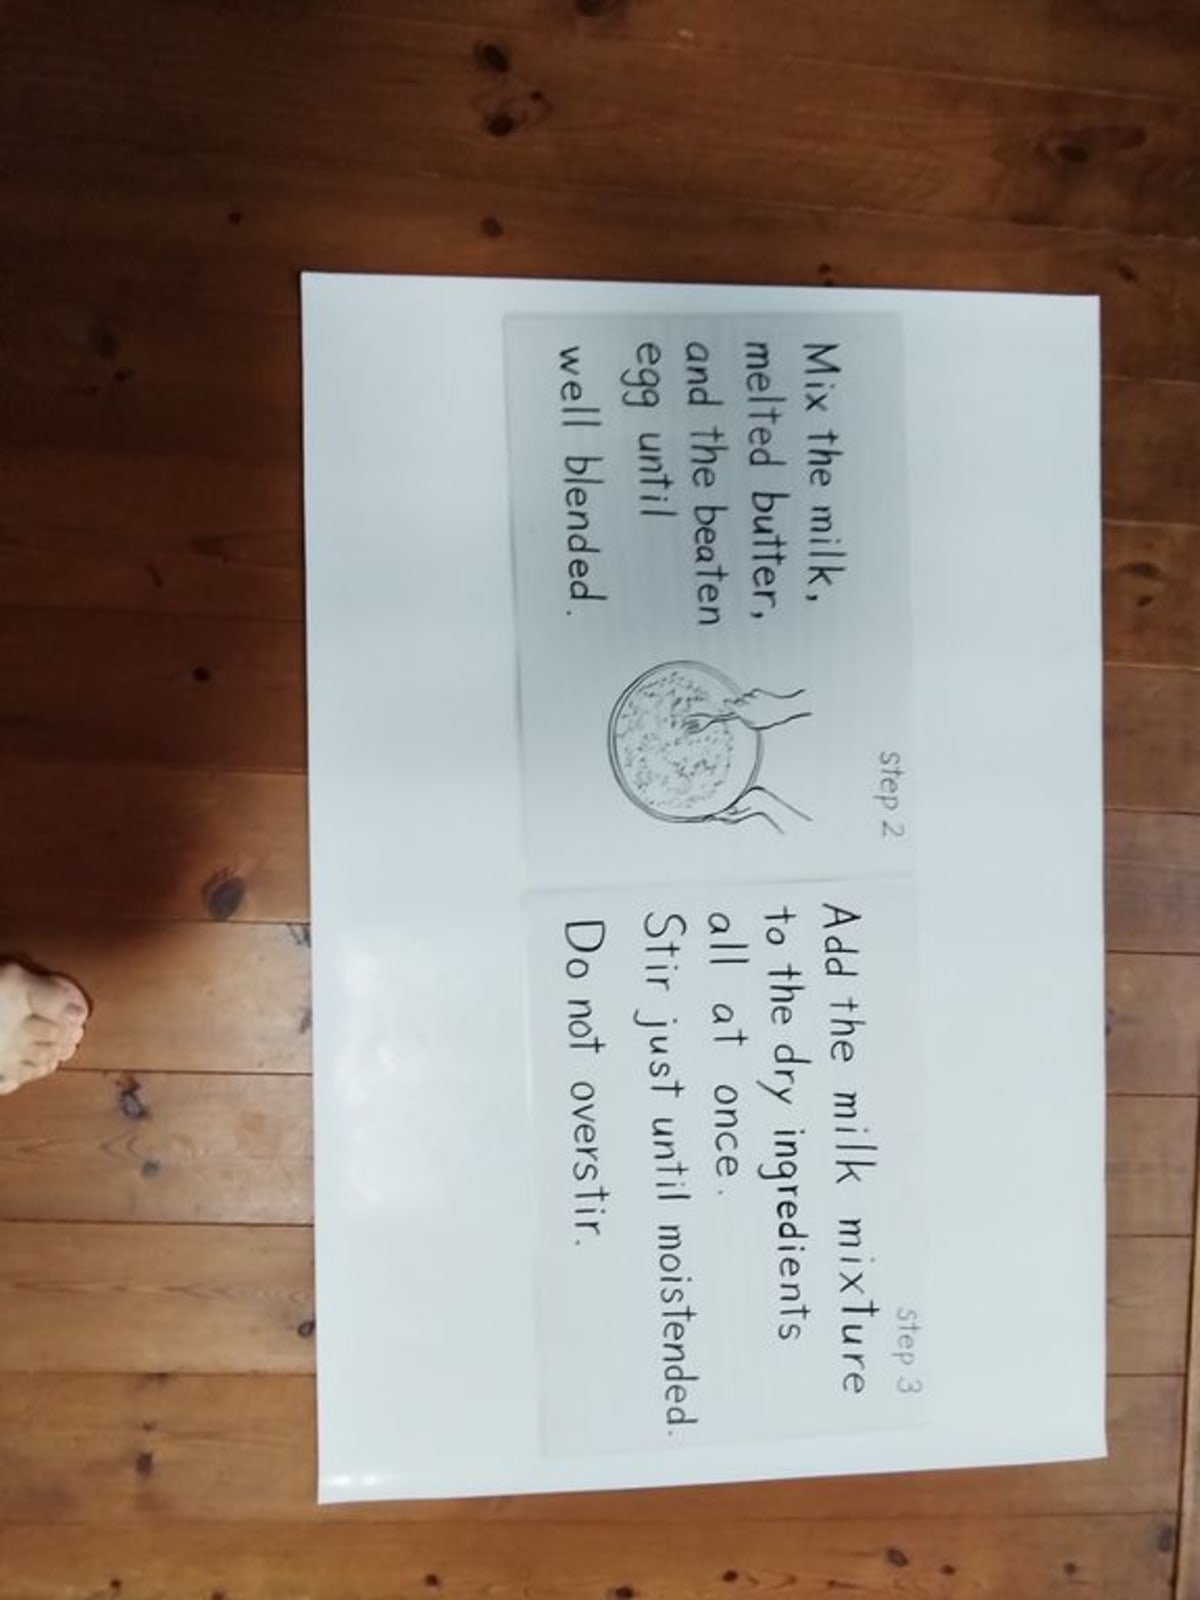 step 2
Mix the milk,
melted butter,
and the beaten
egg until
well blended.
step 3
Add the milk mixture
to the dry ingredients
all at once.
Stir just until moistended.
Do not overstir.